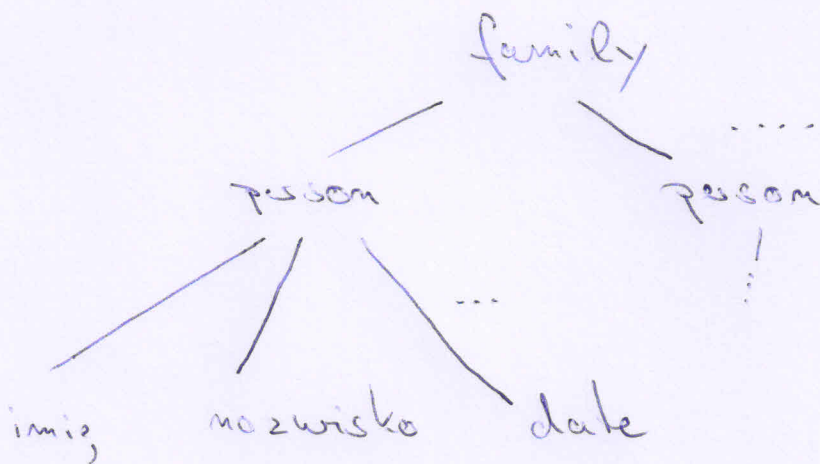 family
.....
person person
...
imię nazwisko date